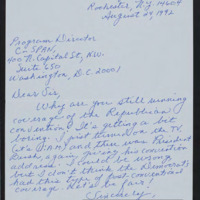 Rochester, N.Y. 14604
August 24, 1992
Program Director
C-SPAN,
400 N. Capitol St., NW.
Suite 650
Washington, D.C. 20001
Dear Sir,
Why are you still running
coverage of the Republican
convention? It's getting a bit
boring. I just turned on the TV.
(at 7 A.M.) and there was President
Bush again giving his convention
address. I could be wrong,
but I don't think the Democrats
had this kind of post convention
coverage. Let's be fair!
Sincerely,